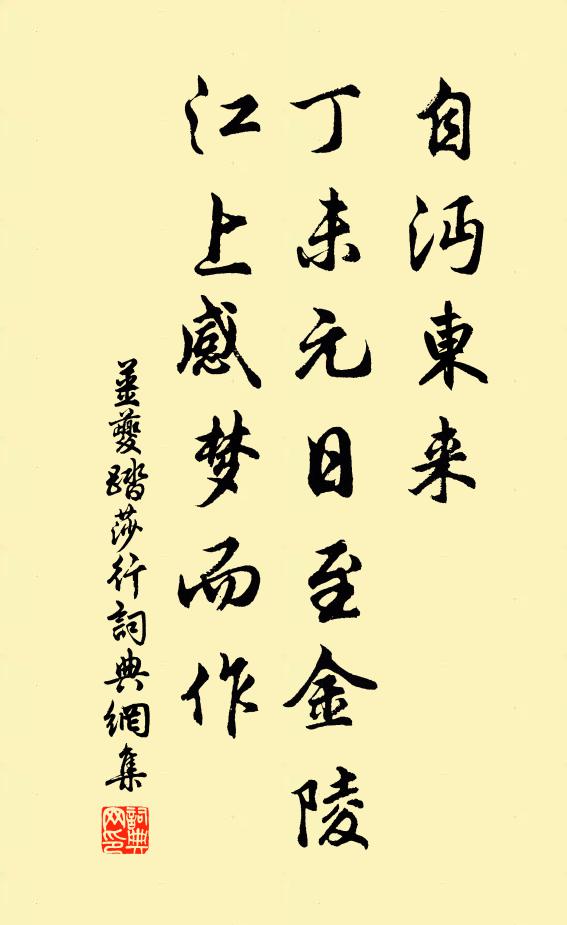 自沔東来
丁未元日至金陵
江上感梦而作
姜夔踏莎行詞典網集
詞典网印